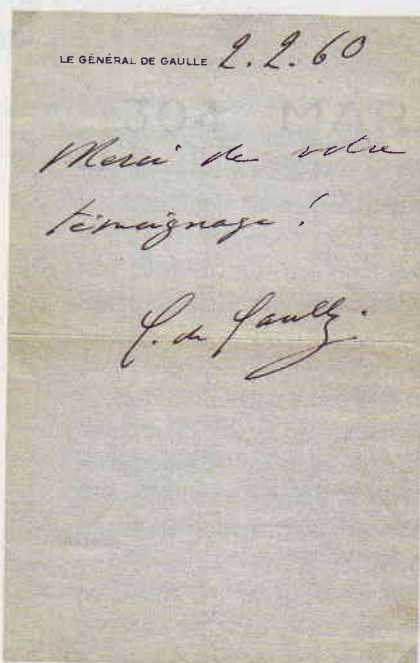 LE GÉNÉRAL DE GAULLE 2.2.60
Merci de votre
témoignage !
C. de Gaulle.